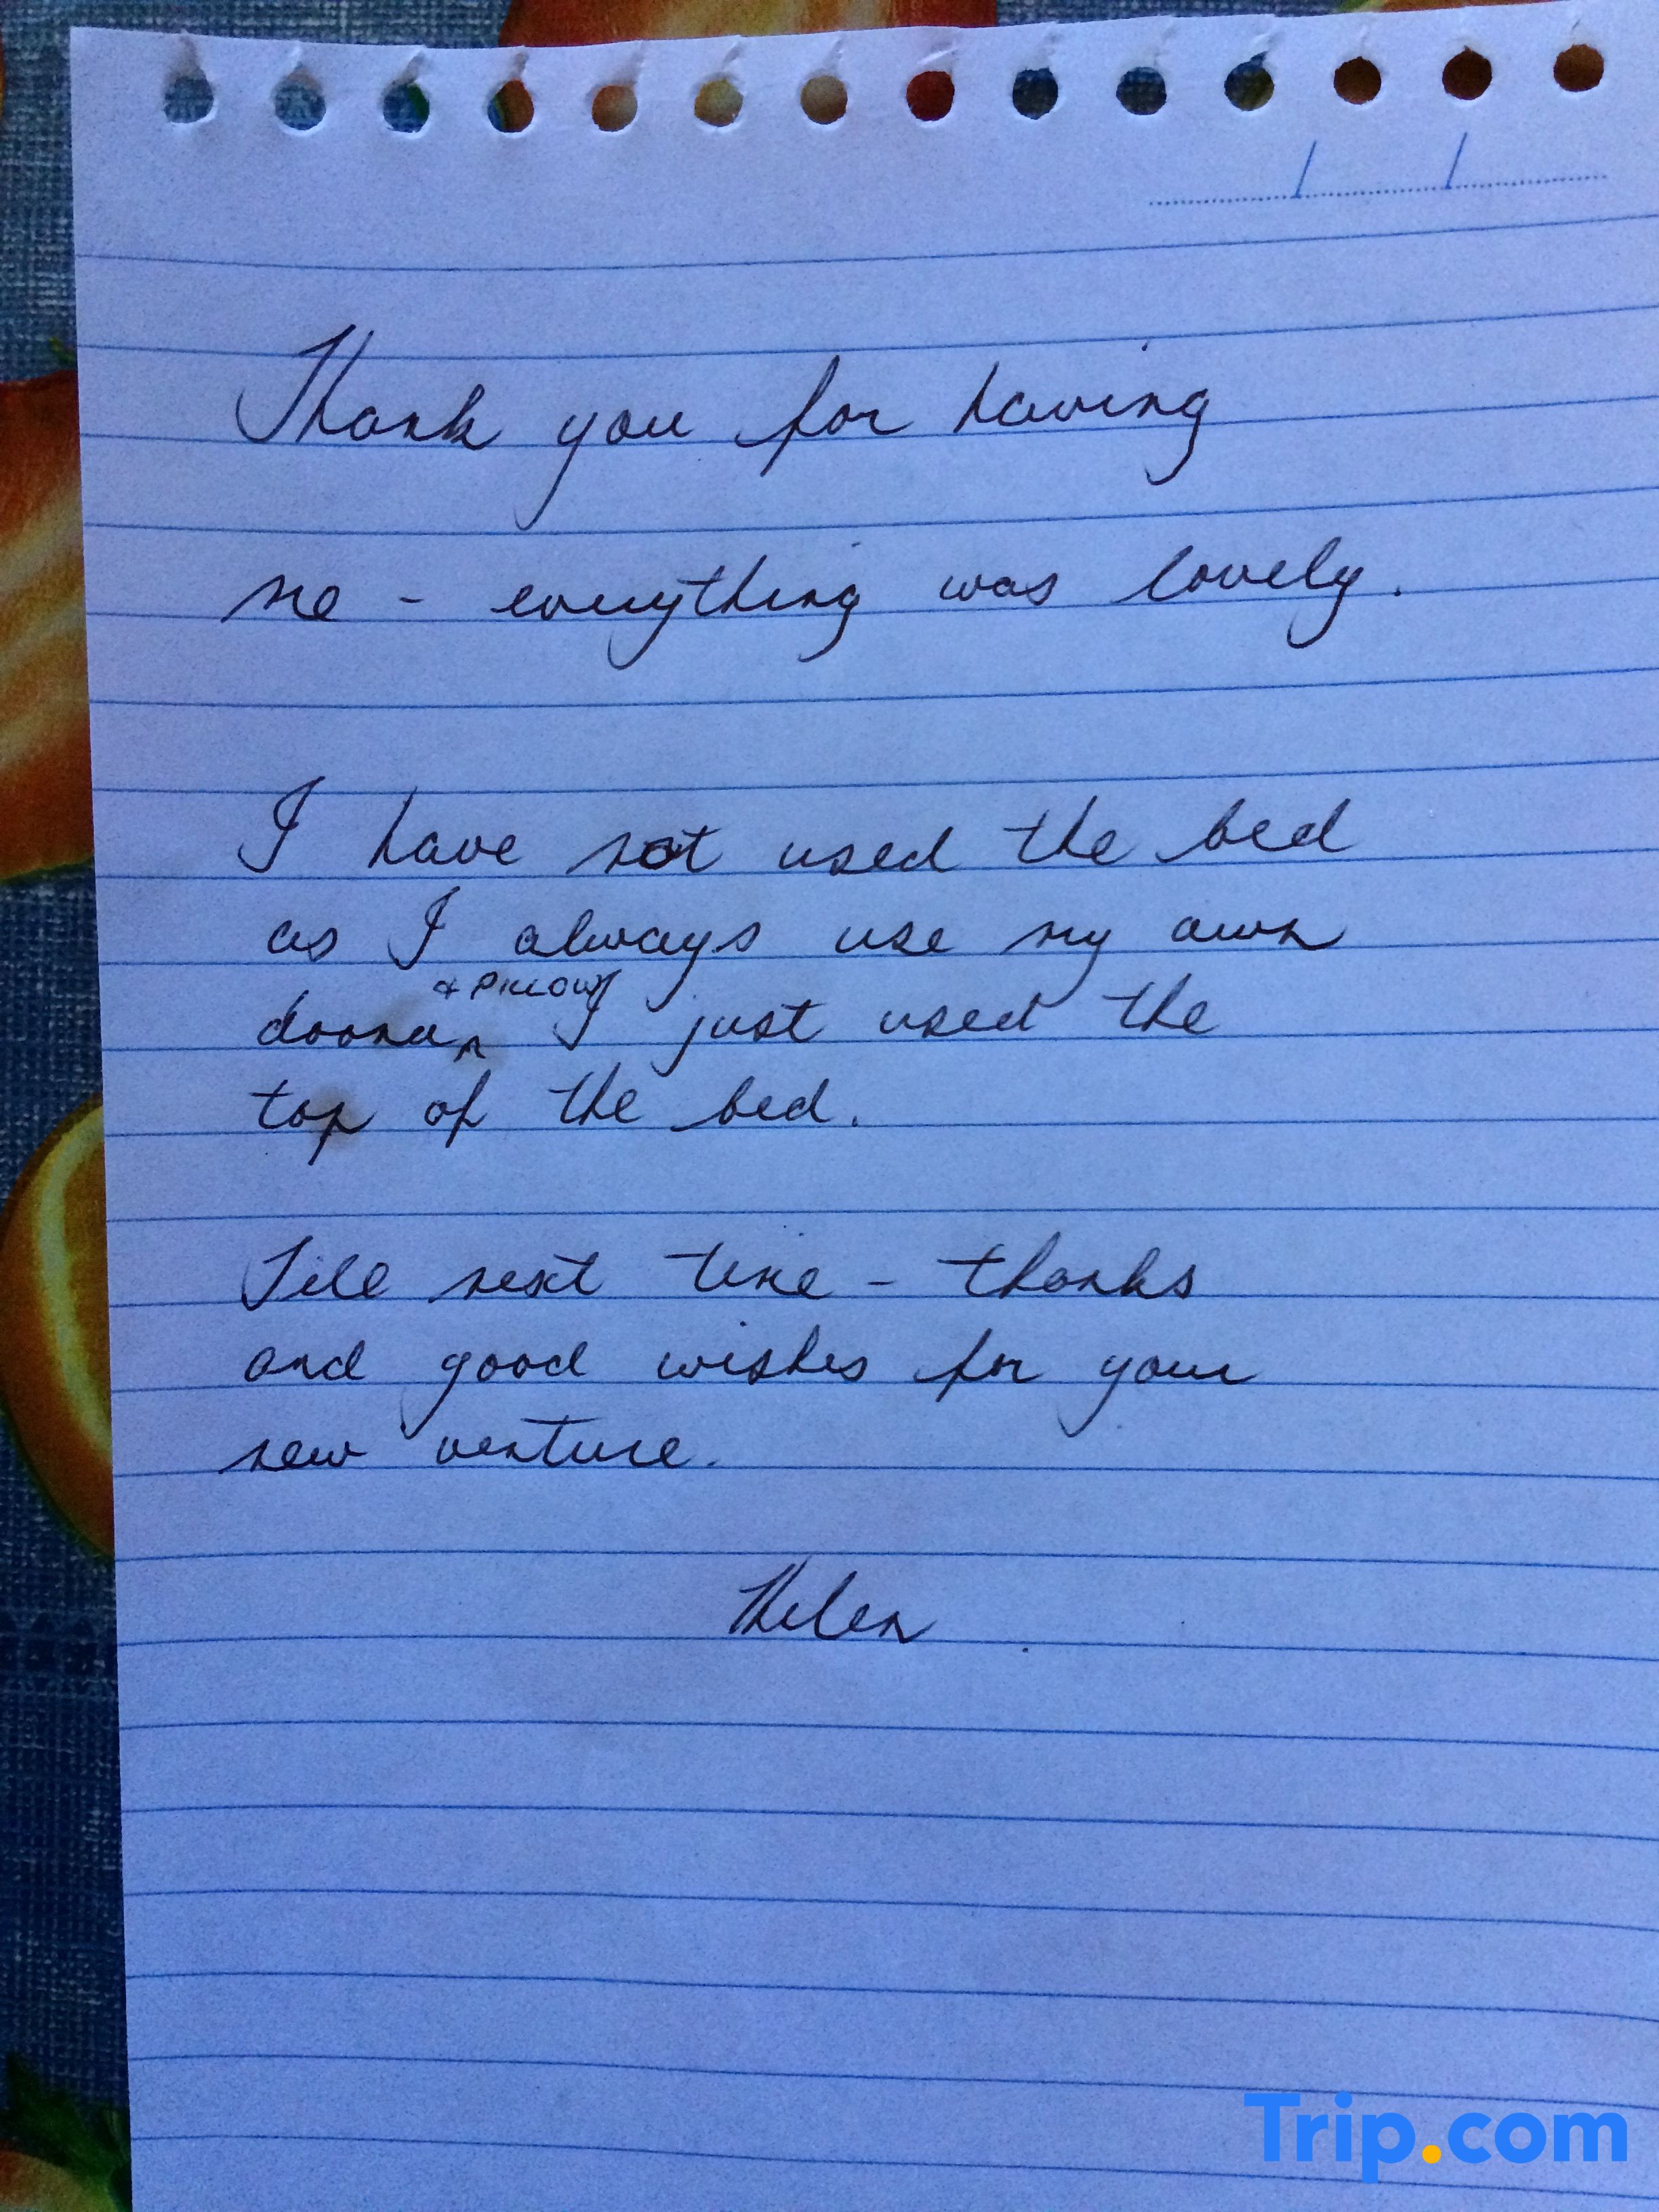 Thank you for having
me - everything was lovely.
I have not used the bed
as I always use my own
doona & PILLOW I just used the
top of the bed.
Till next time - thanks
and good wishes for your
new venture.
Helen
Trip.com